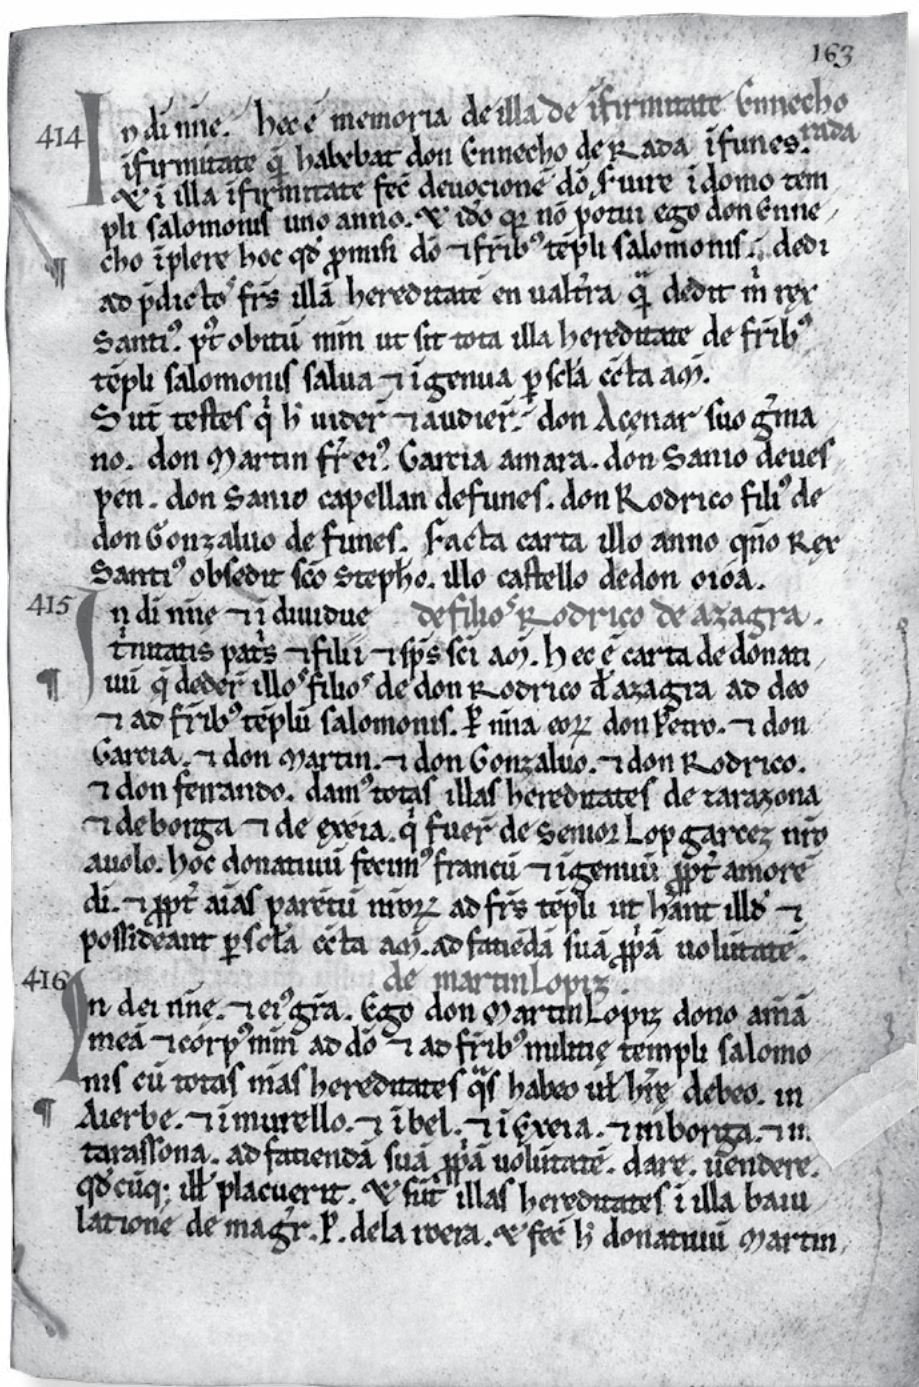 163
414 In di nñe. hec ē memoria de illa de īfirmitate Ennecho
īfirmitate q̄ habebat don Ennecho de Rada ī funes. rada
& ī illa īfirmitate fec̄ deuocionē dō s̄uire ī domo tem
pli salomonis uno anno. & idō qr nō potui ego don Enne
cho īplere hoc qd̄ p̄misi dō ⁊ frīb⁹ tēpli salomonis. dedi
ad p̄dictos frs̄ illā hereditatē en ualtr̄ra q̄ dedit m̄ rex
Santi⁹. pt̄ obitū mm̄ ut sit tota illa hereditate de frīb⁹
tēpli salomonis salua ⁊ īgenua p scl̄a cc̄la am̄.
S ut̄ testes q̄ h̄ uider̄ ⁊ audier̄. don Acenar suo gr̄ma
no. don Martin fr̄ ei⁹. Garcia amara. don Sanio de ues
pen. don Sanio capellan de funes. don Rodrico fili⁹ de
don Gonzaluo de funes. Facta carta illo anno qn̄o Rex
Santi⁹ obsedit sc̄o Steph̄o. illo castello de don oioa.
415 In di nñe ⁊ īdiuidue de filios Rodrico de azagra.
t̄nitatis pat̄s ⁊ filii ⁊ sp̄s sc̄i am̄. hec ē carta de donati
uū q̄ deder̄ illos filios de don Rodrico d̄ azagra ad deo
⁊ ad frīb⁹ tēplū salomonis. p̄ nn̄a eoꝝ don Petro. ⁊ don
Garcia. ⁊ don Martin. ⁊ don Gonzaluo. ⁊ don Rodrico.
⁊ don ferrando. dam⁹ totas illas hereditates de tarazona
⁊ de borga ⁊ de exeia. q̄ fuer̄ de Senior Lop garcez nr̄o
auolo. hoc donatiuū fecim⁹ francū ⁊ īgenuū ꝓpt̄ amorē
di. ⁊ ꝓpt̄ aīas parētū nr̄oꝝ ad frs̄ tēpli ut hān̄t illd̄ ⁊
possideant p scl̄a cc̄la am̄. ad faciēdā suā ꝓp̄ā uolūtatē.
416 de martin Lopiz.
In dei nñe. ⁊ ei⁹ gr̄a. Ego don Martin Lopiz dono am̄ā
meā ⁊ corp⁹ mm̄ ad dō ⁊ ad frīb⁹ militię templi salomo
nis cū totas m̄as hereditates q̄s habeo ul̄ hr̄ę debeo. in
Aierbe. ⁊ ī murello. ⁊ ī bel. ⁊ ī Exeia. ⁊ in borga. ⁊ in
tarassona. ad faciendā suā ꝓp̄ā uolūtatē. dare. uēndere.
qd̄cūq; ill̄ placuerit. & sūt illas hereditates ī illa baiu
latione de magr̄. P̄. de la roera. & fec̄ h̄ donatiuū Martin